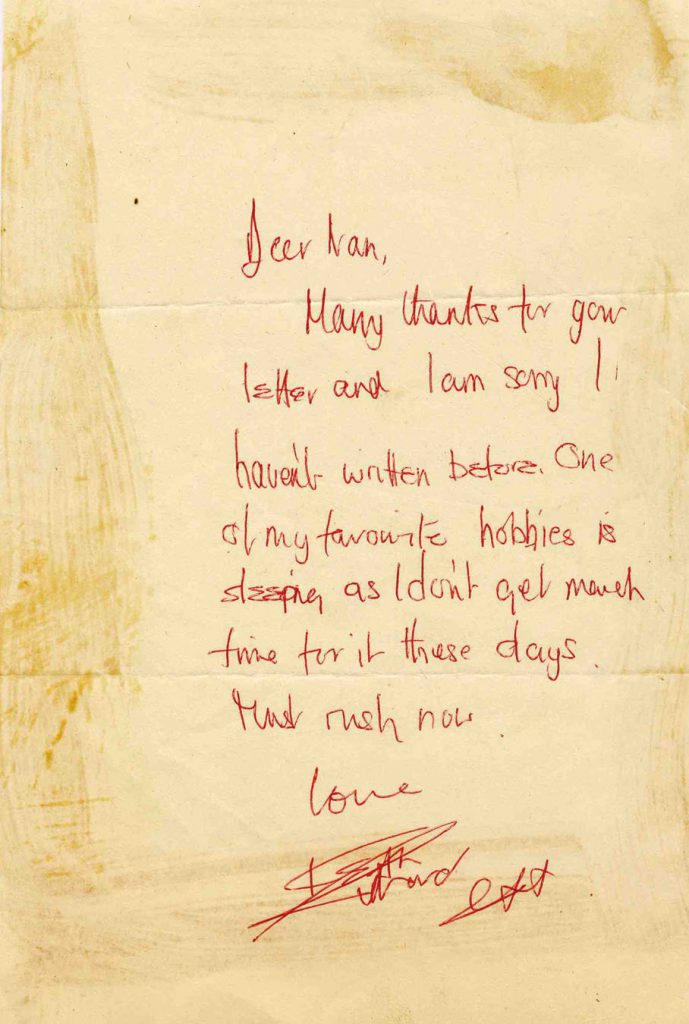 Dear
Many thanks for your
letter and I am sorry I
haven't written before. One
of my favourite hobbies is
sleeping as I don't get much
time for it these days.
Must rush now.
love